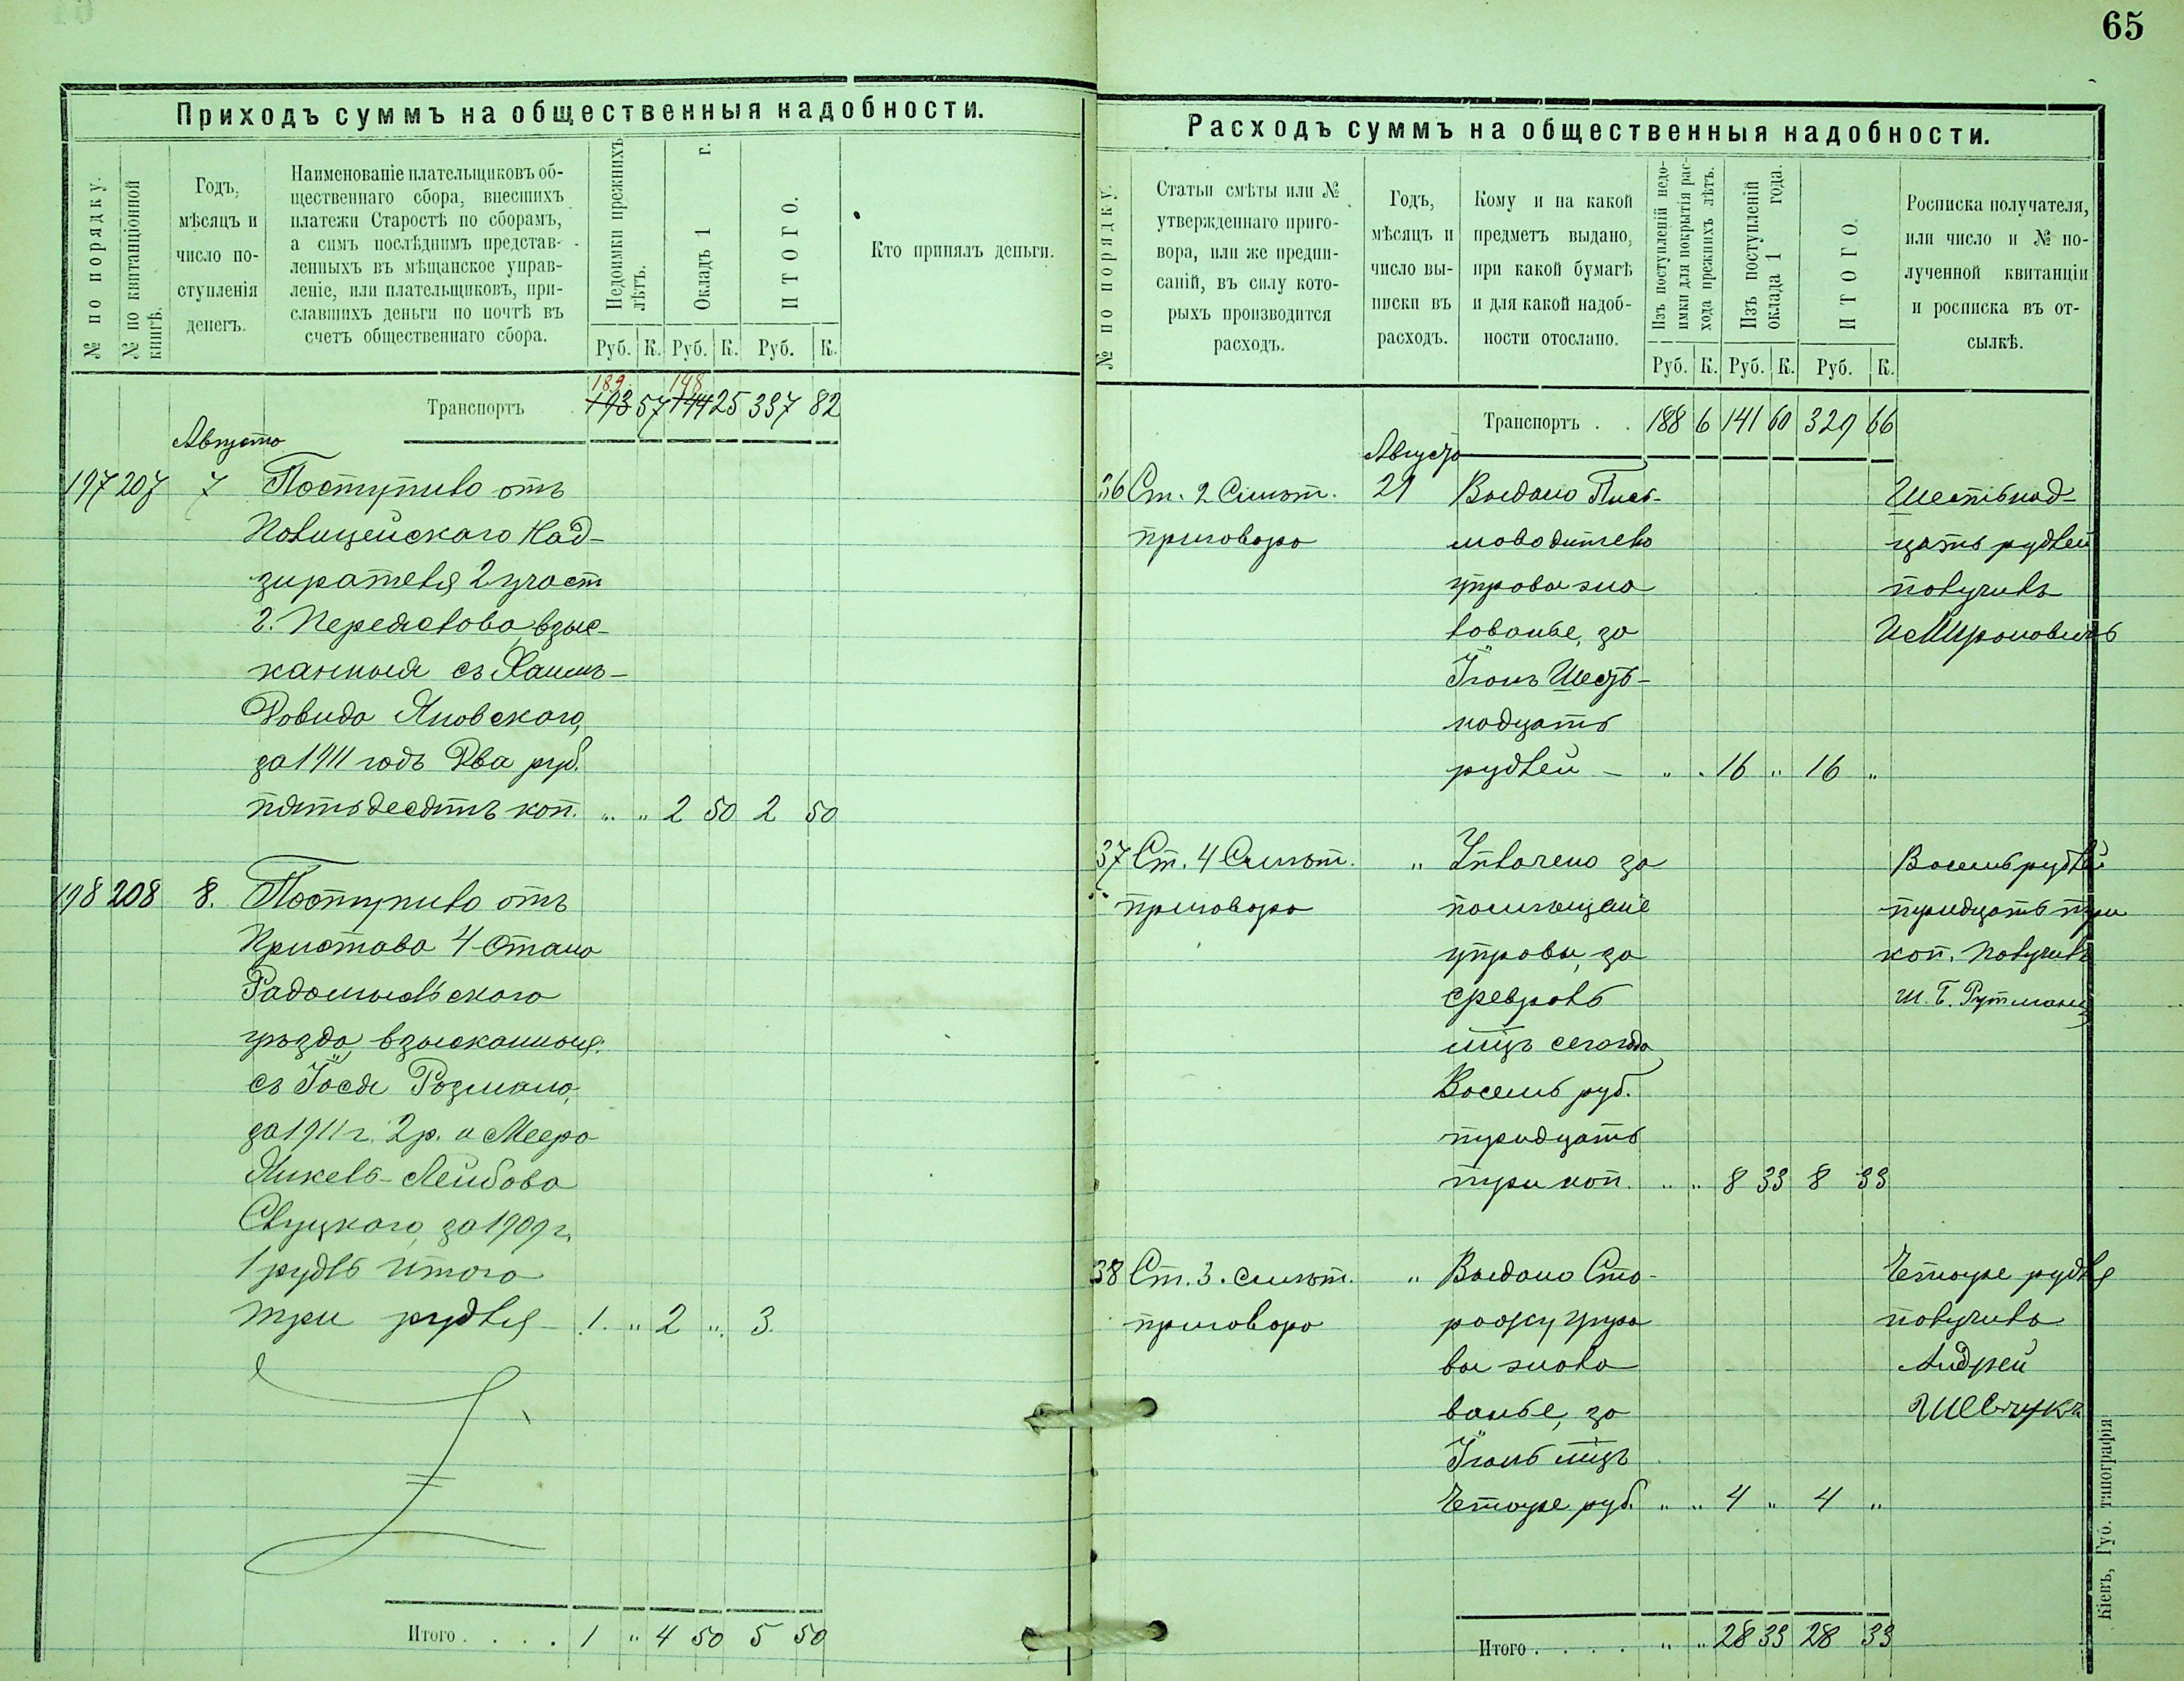 65
Приходъ суммъ на общественныя надобности.
№ по порядку.
№ по квитанціонной книгѣ.
Годъ,
мѣсяцъ и
число по-
ступленія
денегъ.
Наименованіе плательщиковъ об-
щественнаго сбора, внесшихъ
платежи Старостѣ по сборамъ,
а симъ послѣднимъ представ-
ленныхъ въ мѣщанское управ-
леніе, или плательщиковъ, при-
славшихъ деньги по почтѣ въ
счетъ общественнаго сбора.
Недоимки прежнихъ
лѣтъ.
Окладъ 1 г.
ИТОГО.
Кто принялъ деньги.
Руб. К. Руб. К. Руб. К.
189 198
Транспортъ 193 57 144 25 337 82
Августа
197 207 7 Поступило отъ
Полицейскаго Над-
зирателя 2 участ
г. Переяслова, взыс-
канныя съ Хаимъ-
Довида Яновскаго,
за 1911 годъ Два руб.
пятьдесятъ коп. „ „ 2 50 2 50
198 208 8. Поступило отъ
Пристава 4 Стана
Радомысльскаго
уѣзда, взысканныя
съ Іося Розмана,
за 1911 г. 2 р. и Меера
Янкель-Лейбова
Слуцкаго, за 1909 г.
1 рубль итого
три рубля – 1. „ 2 „ 3.
Итого . . . . 1 „ 4 50 5 50
Расходъ суммъ на общественныя надобности.
№ по порядку.
Статьи смѣты или №
утвержденнаго приго-
вора, или же предпи-
саній, въ силу кото-
рыхъ производится
расходъ.
Годъ,
мѣсяцъ и
число вы-
писки въ
расходъ.
Кому и на какой
предметъ выдано,
при какой бумагѣ
и для какой надоб-
ности отослано.
Изъ поступленій недо-
имки для покрытія рас-
хода прежнихъ лѣтъ.
Изъ поступленій
оклада 1 года.
ИТОГО.
Росписка получателя,
или число и № по-
лученной квитанціи
и росписка въ от-
сылкѣ.
Руб. К. Руб. К. Руб. К.
Транспортъ . . 188 6 141 60 329 66
Августа
36 Ст. 2 Смѣт. 29 Выдано Пись- Шестьнад-
приговора моводителю цать рублей
управы жа получилъ
лованье, за И Мироновичъ
Іюнь Шест-
надцать
рублей – „ „ 16 „ 16 „
37 Ст. 4 Смѣт. „ Уплачено за Восемь рублей
приговора помѣщеніе тридцать три
управы, за коп. Получилъ
Февраль Ш. Б. Рутманъ
мцъ сего года
Восемь руб.
тридцать
три коп. „ „ 8 33 8 33
38 Ст. 3. смѣт. „ Выдано Сто- Четыре рубля
приговора рожу упра получилъ
вы жало Андрей
ванье, за Шевчукъ
Іюнь мцъ
Четыре руб. „ „ 4 „ 4 „
Итого . . . . „ „ 28 33 28 33
Кіевъ, Губ. типографія